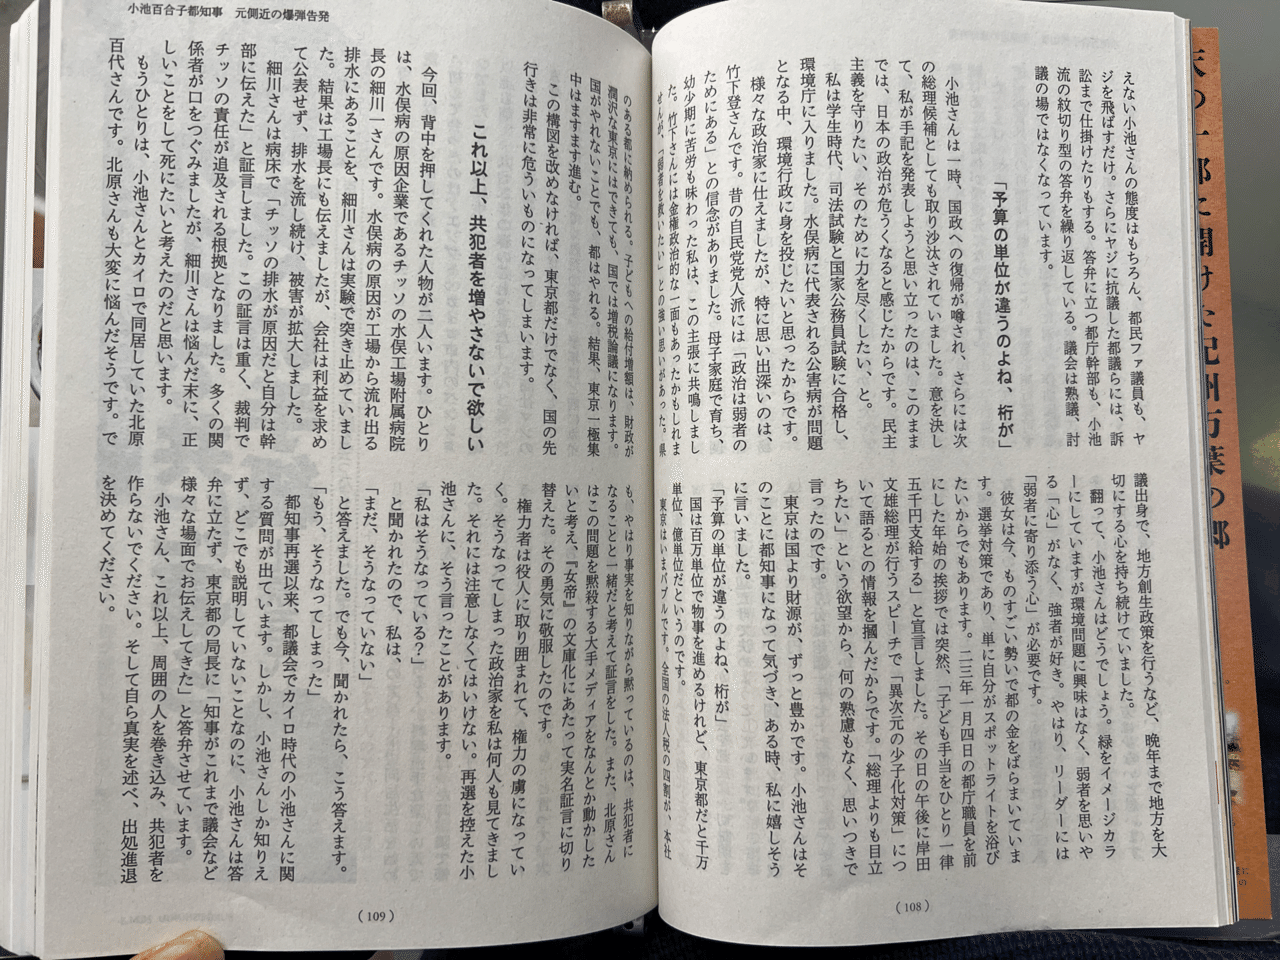 えない小池さんの態度はもちろん、都民ファ議員も、ヤ
ジを飛ばすだけ。さらにヤジに抗議した都議らには、訴
訟まで仕掛けたりもする。答弁に立つ都庁幹部も、小池
流の紋切り型の答弁を繰り返している。議会は熟議、討
議の場ではなくなっています。
「予算の単位が違うのよね、桁が」
小池さんは一時、国政への復帰が噂され、さらには次
の総理候補としても取り沙汰されていました。意を決し
て、私が手記を発表しようと思い立ったのは、このまま
では、日本の政治が危うくなると感じたからです。民主
主義を守りたい、そのために力を尽くしたい、と。
私は学生時代、司法試験と国家公務員試験に合格し、
環境庁に入りました。水俣病に代表される公害病が問題
となる中、環境行政に身を投じたいと思ったからです。
様々な政治家に仕えましたが、特に思い出深いのは、
竹下登さんです。昔の自民党党人派には「政治は弱者の
ためにある」との信念がありました。母子家庭で育ち、
幼少期に苦労も味わった私は、この主張に共鳴しまし
た。竹下さんには金権政治的な一面もあったかもしれま
せんが、「弱者を救いたい」との強い思いがあった。県
議出身で、地方創生政策を行うなど、晩年まで地方を大
切にする心を持ち続けていました。
翻って、小池さんはどうでしょう。緑をイメージカラ
ーにしていますが環境問題に興味はなく、弱者を思いや
る「心」がなく、強者が好き。やはり、リーダーには
「弱者に寄り添う心」が必要です。
彼女は今、ものすごい勢いで都の金をばらまいていま
す。選挙対策であり、単に自分がスポットライトを浴び
たいからでもあります。二三年一月四日の都庁職員を前
にした年始の挨拶では突然、「子ども手当をひとり一律
五千円支給する」と宣言しました。その日の午後に岸田
文雄総理が行うスピーチで「異次元の少子化対策」につ
いて語るとの情報を摑んだからです。「総理よりも目立
ちたい」という欲望から、何の熟慮もなく、思いつきで
言ったのです。
東京は国より財源が、ずっと豊かです。小池さんはそ
のことに都知事になって気づき、ある時、私に嬉しそう
に言いました。
「予算の単位が違うのよね、桁が」
国は百万単位で物事を進めるけれど、東京都だと千万
単位、億単位だというのです。
東京はいまバブルです。全国の法人税の四割が、本社
(108)
小池百合子都知事 元側近の爆弾告発
のある都に納められる。子どもへの給付増額は、財政が
潤沢な東京にはできても、国では増税論議になります。
国がやれないことでも、都はやれる。結果、東京一極集
中はますます進む。
この構図を改めなければ、東京都だけでなく、国の先
行きは非常に危ういものになってしまいます。
これ以上、共犯者を増やさないで欲しい
今回、背中を押してくれた人物が二人います。ひとり
は、水俣病の原因企業であるチッソの水俣工場附属病院
長の細川一さんです。水俣病の原因が工場から流れ出る
排水にあることを、細川さんは実験で突き止めていまし
た。結果は工場長にも伝えましたが、会社は利益を求め
て公表せず、排水を流し続け、被害が拡大しました。
細川さんは病床で「チッソの排水が原因だと自分は幹
部に伝えた」と証言しました。この証言は重く、裁判で
チッソの責任が追及される根拠となりました。多くの関
係者が口をつぐみましたが、細川さんは悩んだ末に、正
しいことをして死にたいと考えたのだと思います。
もうひとりは、小池さんとカイロで同居していた北原
百代さんです。北原さんも大変に悩んだそうです。で
も、やはり事実を知りながら黙っているのは、共犯者に
なることと一緒だと考えて証言をした。また、北原さん
はこの問題を黙殺する大手メディアをなんとか動かした
いと考え、『女帝』の文庫化にあたって実名証言に切り
替えた。その勇気に敬服したのです。
権力者は役人に取り囲まれて、権力の虜になってい
く。そうなってしまった政治家を私は何人も見てきまし
た。それには注意しなくてはいけない。再選を控えた小
池さんに、そう言ったことがあります。
「私はそうなっている？」
と聞かれたので、私は、
「まだ、そうなっていない」
と答えました。でも今、聞かれたら、こう答えます。
「もう、そうなってしまった」
都知事再選以来、都議会でカイロ時代の小池さんに関
する質問が出ています。しかし、小池さんしか知りえ
ず、どこでも説明していないことなのに、小池さんは答
弁に立たず、東京都の局長に「知事がこれまで議会など
様々な場面でお伝えしてきた」と答弁させています。
小池さん、これ以上、周囲の人を巻き込み、共犯者を
作らないでください。そして自ら真実を述べ、出処進退
を決めてください。
(109)